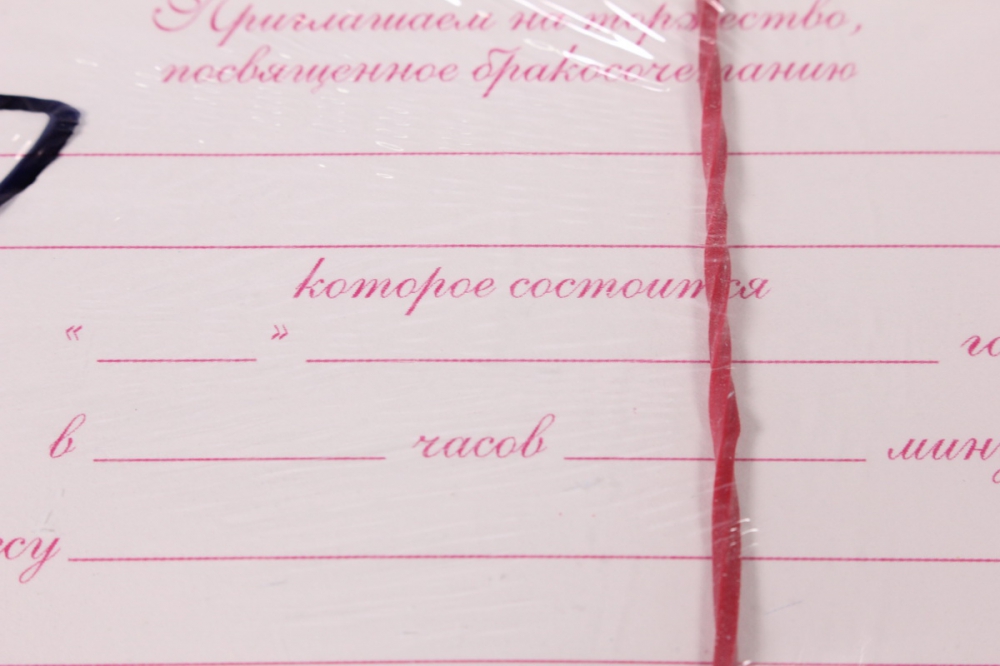 Приглашаем на торжество,
посвященное бракосочетанию
которое состоится
« »
в часов